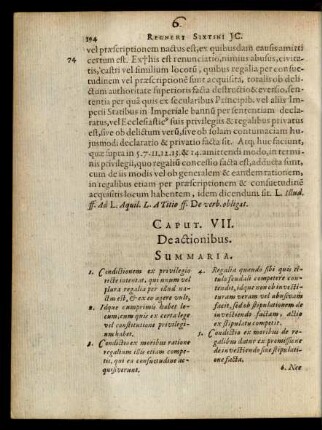 6
194 REGNERI SIXTINI JC.
vel præscriptionem nactus est, ex quibusdam causis amitti
74 certum est. Ex his est renunciatio, nimius abusus, civita-
tis, castri vel similium locorũ, quibus regalia per consue-
tudinem vel præscriptionẽ sunt acquisita, totalis ob deli-
ctum authoritate superioris facta destructio & eversio, sen-
tentia per quã quis ex secularibus Principib. vel aliis Imp-
erii Statibus in Imperiale bannũ per sententiam declara-
tus, vel Ecclesiastic9 suis privilegiis & regalibus privatus
est, sive ob delictum verũ, sive ob solam contumaciam
judicio declaratio & privatio facta sit. Atq; huc faciunt,
quæ supra in 5.7.11.12.13. & 14. amittendi modo, in termi-
nis privilegii, quo regaliũ concessio facta est, adducta sunt,
cum de iis modo vel ob generalem & eandem rationem,
in regalibus etiam per præscriptionem & consuetudinẽ
acquisitis locum habentem, idem dicendum sit. L. Illud.
ff. Ad L. Aquil. L. A Titio ff. De verb. obligat.
CAPUT. VII.
De actionibus.
SUMMARIA.
1. Condictionem ex privilegio
rectè intentat, qui unum vel
plura regalia per illud na-
ctus est, & ex eo agere vult,
2. Idque tum primò habet lo-
cum, cum quis ex certa lege
vel constitutione privilegi-
um habet.
3. Condictio ex moribus ratione
regalium illis etiam compe-
tit, qui ea consuetudine ac-
quisiverunt.
4. Regalia quando sibi quis ti-
tulo feudali competere con-
tendit, idque non ob investi-
turam veram vel abusivam
fuisse, sed ob stipulationem de
investiendo factam, actio
ex stipulatu competit.
5. Condictio ex moribus de re-
galibus datur ex promissione
de investiendo sine stipulati-
one facta.
6. Nec